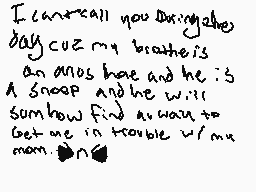 I cant call you During the
day cuz my brother is
an anos hole and he is
A snoop and he will
somhow find a way to
Get me in trouble w/ my
mom.